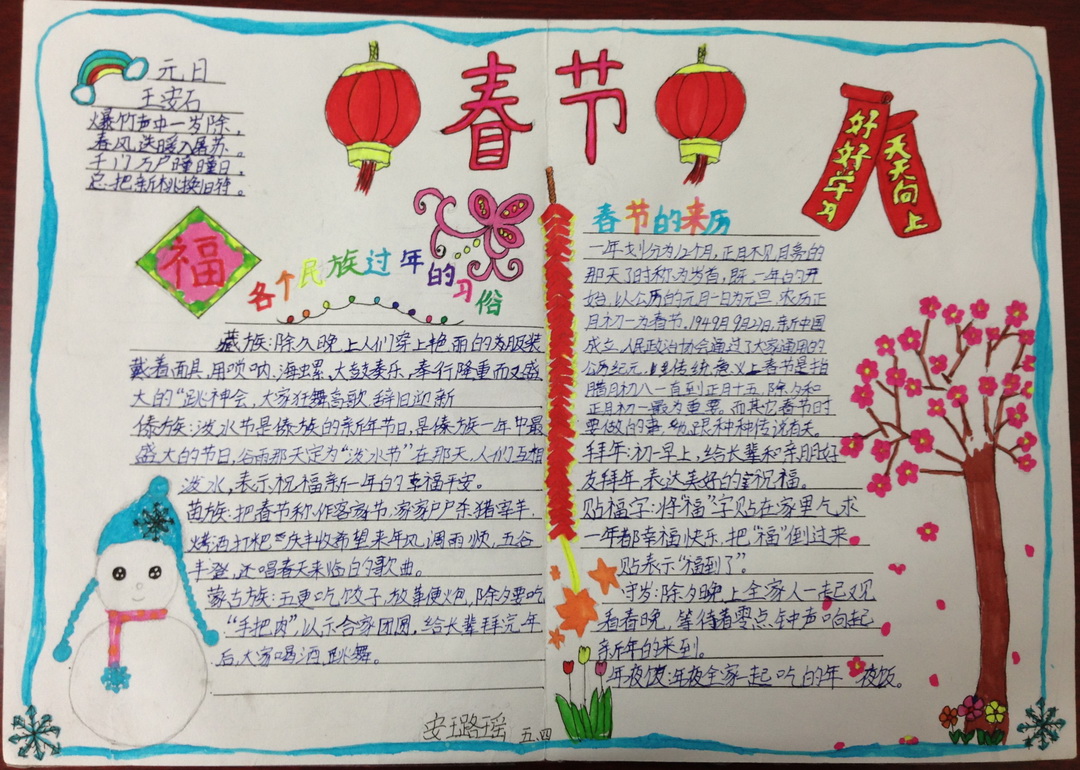 春节
元日
王安石
爆竹声中一岁除，
春风送暖入屠苏。
千门万户曈曈日，
总把新桃换旧符。
福
好好学习
天天向上
各个民族过年的习俗
藏族：除夕晚上人们穿上艳丽的为服装
戴着面具，用唢呐、海螺、大鼓奏乐，奉行隆重而又盛
大的“跳神会，大家狂舞高歌 辞旧迎新
傣族：泼水节是傣族的新年节日，是傣族一年中最
盛大的节日，谷雨那天定为“泼水节”在那天，人们互相
泼水，表示祝福新一年的幸福平安。
苗族：把春节称作客家节，家家户户杀猪宰羊，
烤酒打粑 庆丰收希望来年风调雨顺，五谷
丰登，还唱春天来临白的歌曲。
蒙古族：五更吃饺子，放草便火包，除夕要吃
“手把肉”以示合家团圆，给长辈拜完年
后，大家喝酒、跳舞。
春节的来历
一年划分为12个月，正月不见月亮的
那天了时称为岁首，既一年的开
始，以公历的元月一日为元旦 农历正
月初一为春节。1949月9月27日，新中国
成立，人民政治协会通过了大家通用的
公历纪元，传统意义上春节是指
腊月初八一直到正月十五，除夕和
正月初一最为重要。而其它春节时
要做的事 ，跟种种传说有关。
拜年：初一早上，给长辈和亲朋好
友拜年，表达美好的祝福。
贴福字：将“福”字贴在家里气求
一年都幸福快乐，把“福”倒过来
贴表示“福到了”。
守岁：除夕晚上全家人一起又见
看春晚，等待着零点钟声响起
新年的来到。
年夜饭：年夜全家一起吃的年 夜饭。
安玉路瑶 五.四